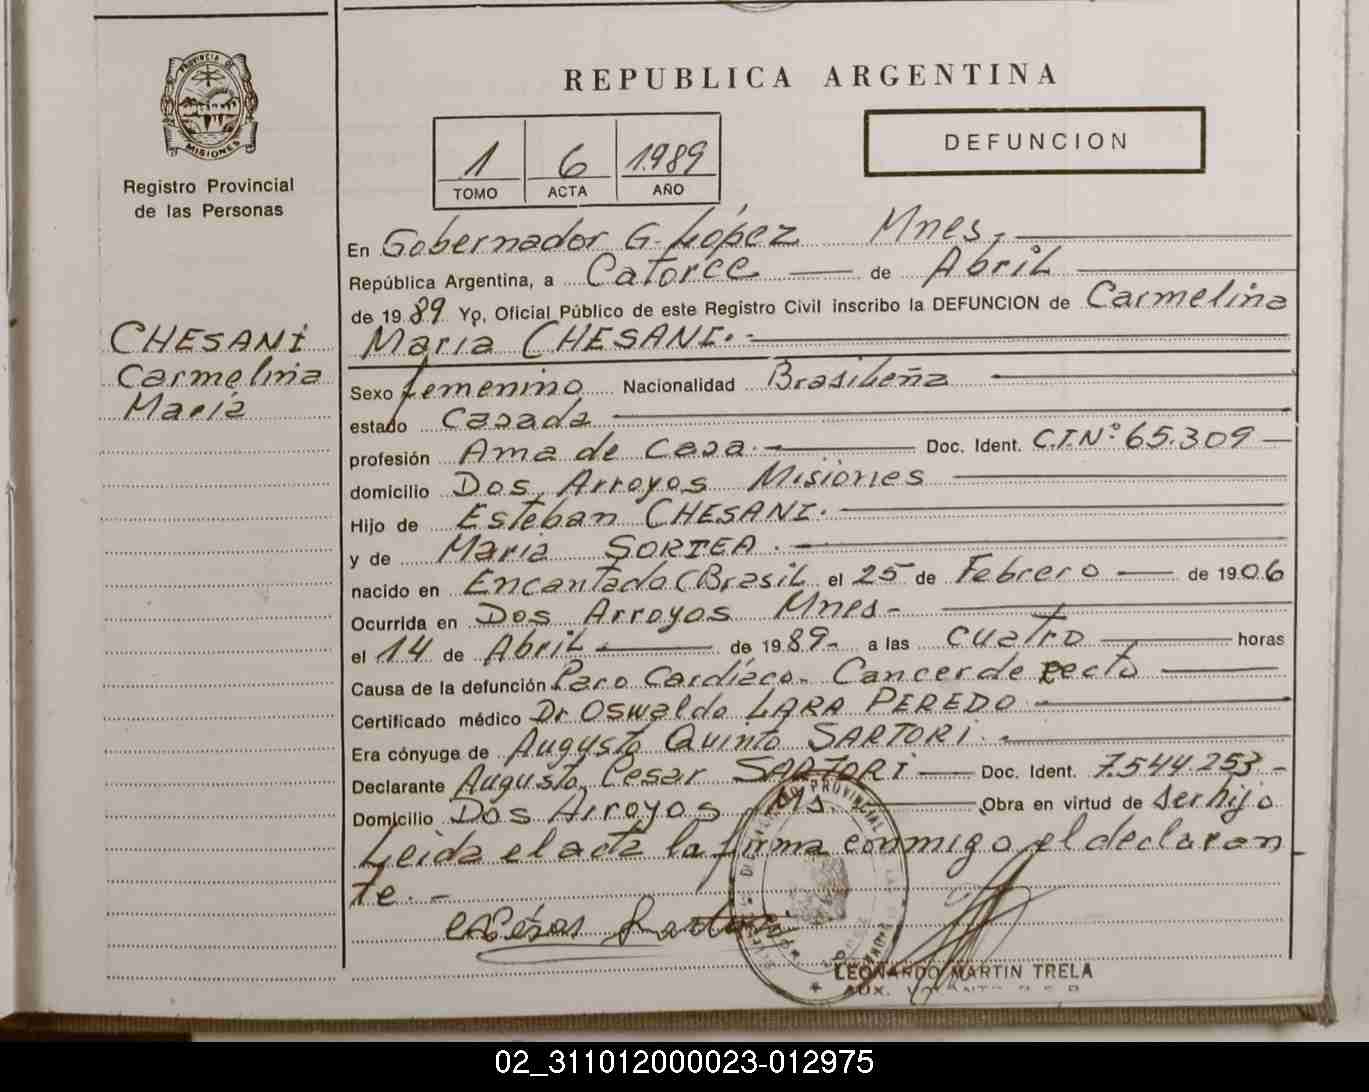 PROVINCIA DE
MISIONES
Registro Provincial
de las Personas
CHESANI
Carmelina
María
REPUBLICA ARGENTINA
1 6 1.989
TOMO ACTA AÑO
DEFUNCION
En Gobernador G. López Mnes.
República Argentina, a Catorce de Abril
de 19 89 Yo, Oficial Público de este Registro Civil inscribo la DEFUNCION de Carmelina
Maria CHESANI.-
Sexo femenino Nacionalidad Brasileña
estado Casada
profesión Ama de Casa. Doc. Ident. C.I.Nº 65.309
domicilio Dos Arroyos Misiones
Hijo de Esteban CHESANI.
y de Maria SORTEA.
nacido en Encantado (Brasil el 25 de Febrero de 1906
Ocurrida en Dos Arroyos Mnes-
el 14 de Abril de 1989- a las cuatro horas
Causa de la defunción Paro Cardíaco- Cancer de recto
Certificado médico Dr Oswaldo LARA PEREDO
Era cónyuge de Augusto Quinto SARTORI.
Declarante Augusto Cesar SARTORI Doc. Ident. 7.544.253-
Domicilio Dos Arroyos Ms. Obra en virtud de ser hijo
Leida el acta la firma conmigo el declaran
te.-
LEONARDO MARTIN TRELA
02_311012000023-012975